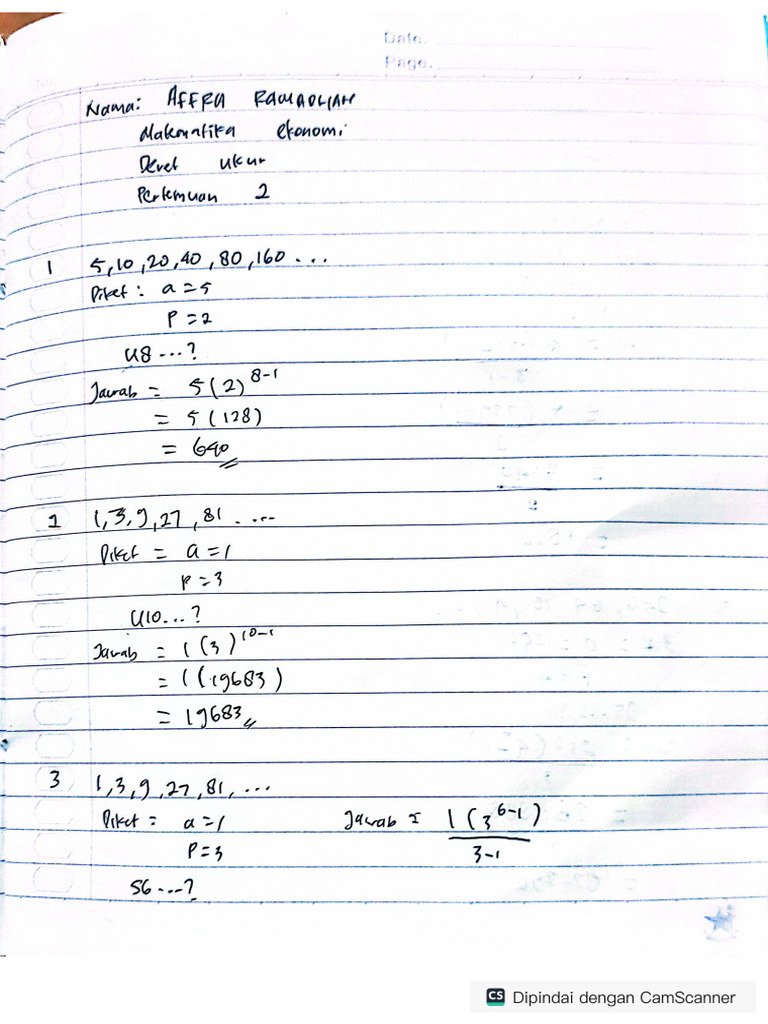 Date.
Page.
Nama: AFFRA RAMADLIAH
Matematika ekonomi
Deret ukur
Pertemuan 2
1 5, 10, 20, 40, 80, 160 ...
Diket : a = 5
P = 2
U8 ...?
Jawab = 5 (2)^8-1
= 5 (128)
= 640
2 1, 3, 9, 27, 81 . ...
Diket = a = 1
P = 3
U10...?
Jawab = 1 (3)^10-1
= 1 (19683)
= 19683
3 1, 3, 9, 27, 81, ...
Diket = a = 1 Jawab = 1 (3^6-1)
P = 3 3-1
S6 ...?
CS Dipindai dengan CamScanner